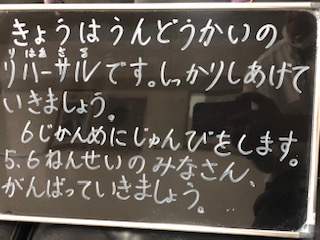 きょうはうんどうかいの
りはあさる
リハーサルです。しっかりしあげて
いきましょう。
6じかんめにじゅんびをします。
5.6ねんせいのみなさん、
がんばっていきましょう。